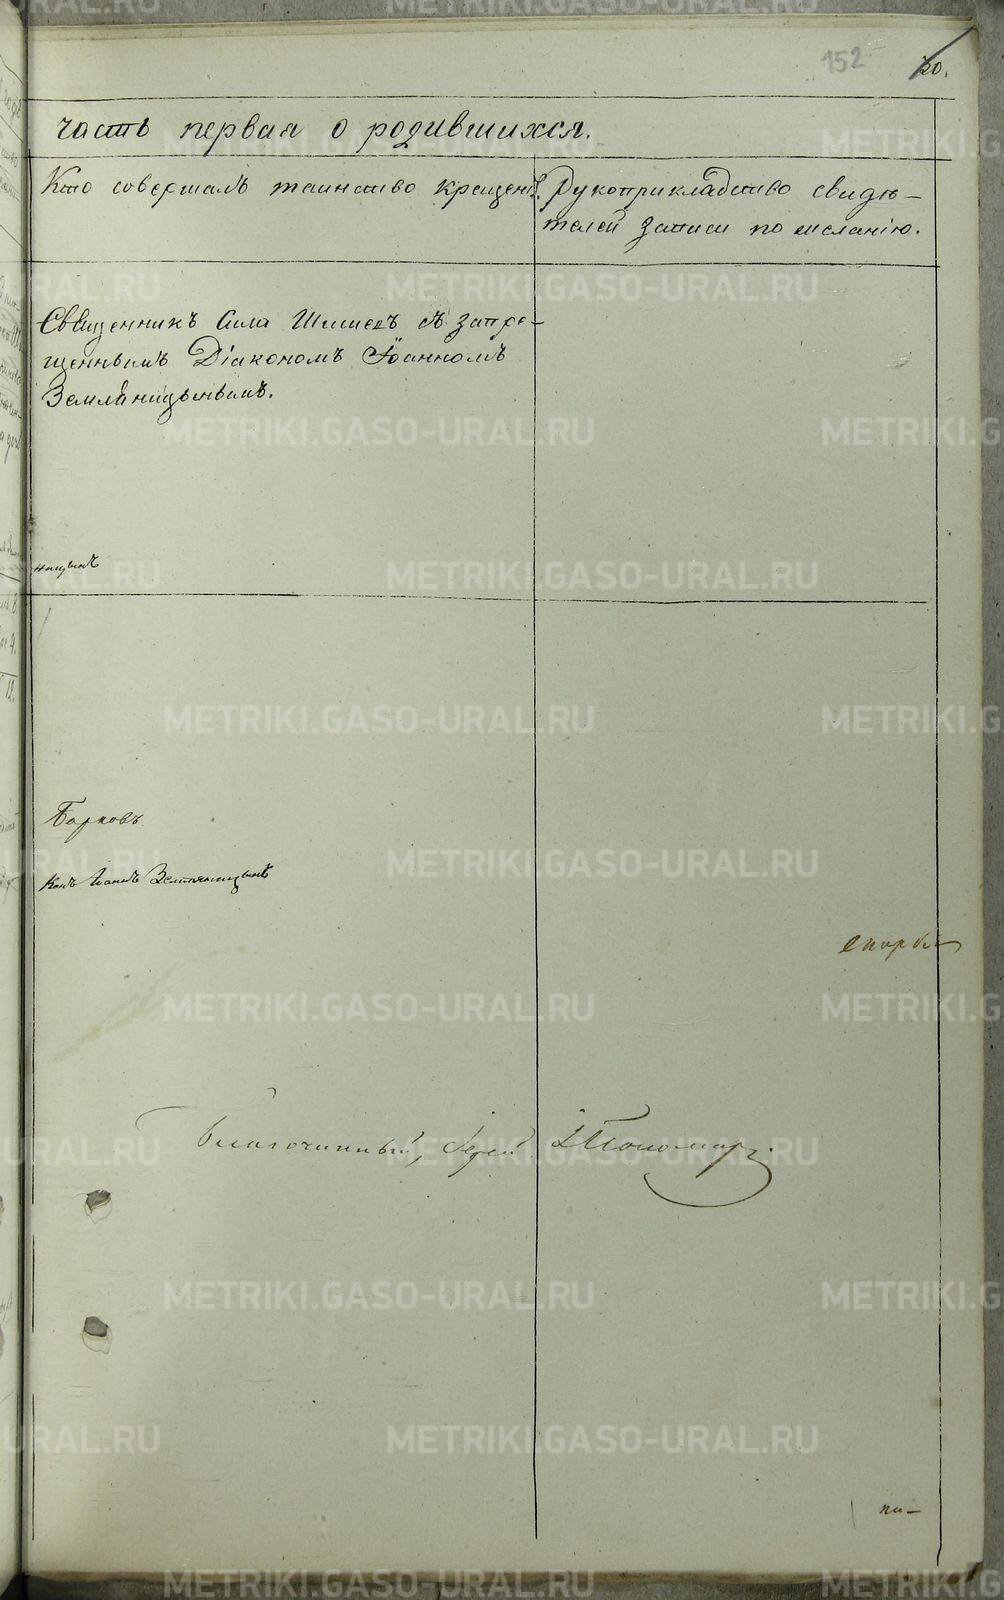 152
часть первая о родившихся.
Кто совершалъ таинство крещенія.
Рукоприкладство свидѣ-
телей записи по желанію.
Священникъ Сила съ запре-
щеннымъ Діакономъ Іоанномъ
Земляницынымъ.
ницынъ
Барковъ
конъ Іоаннъ Земляницынъ
скорбя
Благочинный, Іерей І. Пономар
па-
METRIKI.GASO-URAL.RU